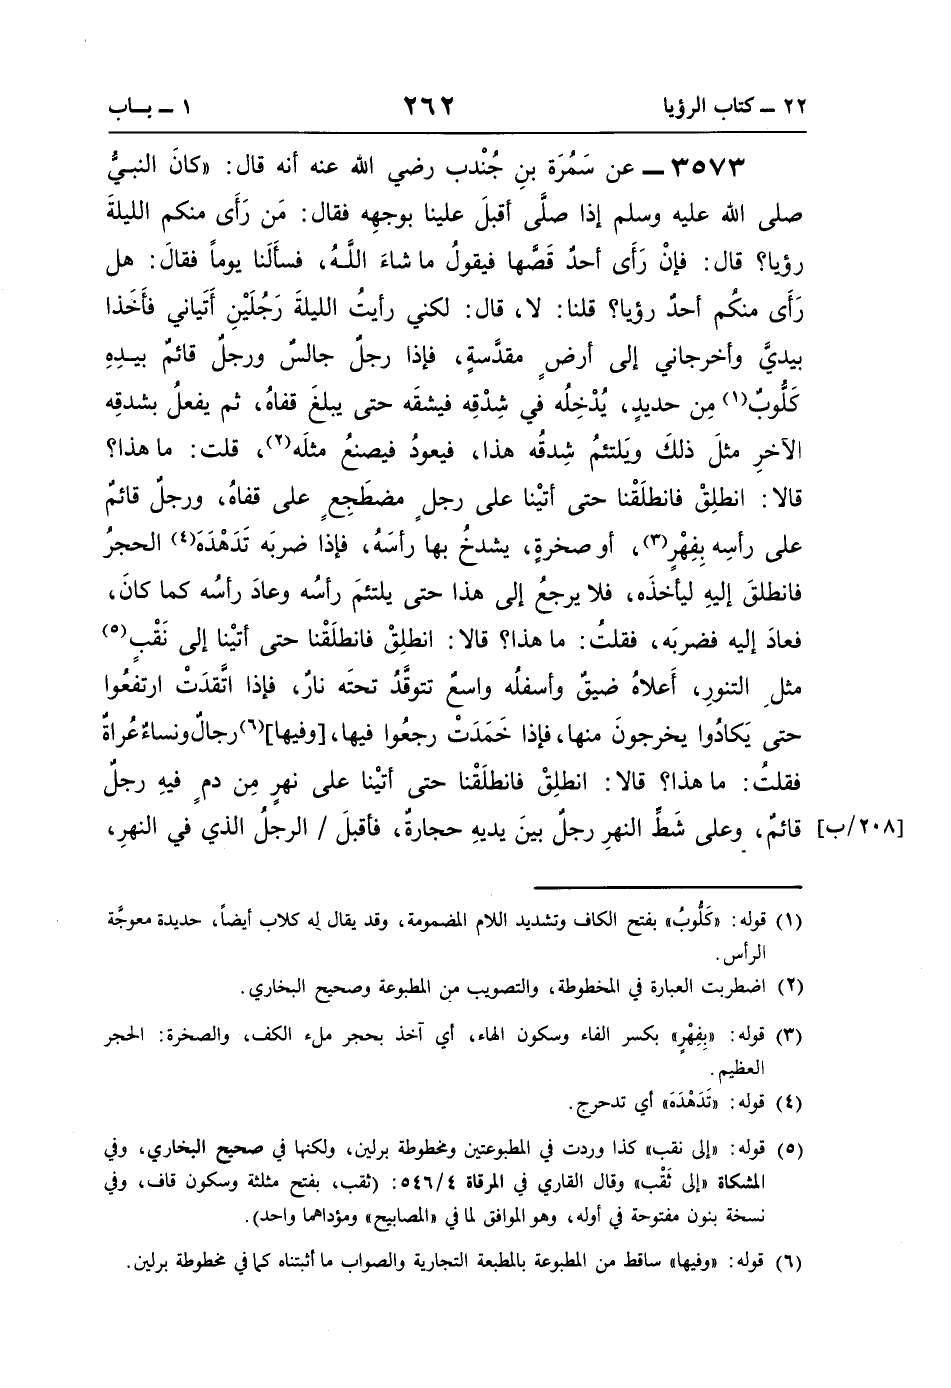 ٢٢ ـ كتاب الرؤيا ٢٦٢ ١ ـ بـاب
٣٥٧٣ ـ عن سَمُرَة بنِ جُنْدب رضي الله عنه أنه قال: «كانَ النبيُّ
صلى الله عليه وسلم إذا صلَّى أقبلَ علينا بوجهِه فقال: مَن رَأى منكم الليلةَ
رؤيا؟ قال: فإنْ رَأى أحدٌ قَصَّها فيقولُ ما شاءَ اللَّـهُ، فسألَنا يوماً فقالَ: هل
رَأى منكُم أحدٌ رؤيا؟ قلنا: لا، قال: لكني رأيتُ الليلةَ رَجُلَيْنِ أَتَياني فأَخَذا
بيديَّ وأخرجاني إلى أرضٍ مقدَّسةٍ، فإذا رجلٌ جالسٌ ورجلٌ قائمٌ بيـدِهِ
كَلُّوبٌ(١) مِن حديدٍ، يُدْخِلُه في شِدْقِه فيشقه حتى يبلغَ قفاهُ، ثم يفعلُ بشدقِه
الآخرِ مثلَ ذلكَ ويَلتئمُ شِدقُه هذا، فيعودُ فيصنعُ مثلَه(٢)، قلت: ما هذا؟
قالا: انطلِقْ فانطلَقْنا حتى أتيْنا على رجلٍ مضطَجِعٍ على قفاهُ، ورجلٌ قائمٌ
على رأسِه بِفِهْرٍ(٣)، أو صخرةٍ، يشدخُ بها رأسَهُ، فإذا ضربَه تَدَهْدَهَ(٤) الحجرُ
فانطلقَ إليهِ ليأخذَه، فلا يرجعُ إلى هذا حتى يلتئمَ رأسُه وعادَ رأسُه كما كانَ،
فعادَ إليه فضربَه، فقلتُ: ما هذا؟ قالا: انطلِقْ فانطلَقْنا حتى أتيْنا إلى نَقْبٍ(٥)
مثلِ التنورِ، أَعلاهُ ضيقٌ وأسفلُه واسعٌ تتوقَّدُ تحتَه نارٌ، فإذا اتَّقدَتْ ارتفعُوا
حتى يَكادُوا يخرجونَ منها، فإذا خَمَدَتْ رجعُوا فيها، [وفيها](٦) رجالٌ ونساءٌ عُراةٌ
فقلتُ: ما هذا؟ قالا: انطلِقْ فانطلَقْنا حتى أتيْنا على نهرٍ مِن دمٍ فيهِ رجلٌ
[٢٠٨/ب] قائمٌ، وعلى شَطِّ النهرِ رجلٌ بينَ يديهِ حجارةٌ، فأقبلَ / الرجلُ الذي في النهرِ،
(١) قوله: «كَلُّوبُ» بفتح الكاف وتشديد اللام المضمومة، وقد يقال له كلاب أيضاً، حديدة معوجَّة
الرأس.
(٢) اضطربت العبارة في المخطوطة، والتصويب من المطبوعة وصحيح البخاري.
(٣) قوله: «بِفِهْرٍ» بكسر الفاء وسكون الهاء، أي آخذ بحجر ملء الكف، والصخرة: الحجر
العظيم.
(٤) قوله: «تَدَهْدَهَ» أي تدحرج.
(٥) قوله: «إلى نقب» كذا وردت في المطبوعتين ومخطوطة برلين، ولكنها في صحيح البخاري، وفي
المشكاة «إلى ثَقْب» وقال القاري في المرقاة ٥٤٦/٤: (ثقب، بفتح مثلثة وسكون قاف، وفي
نسخة بنون مفتوحة في أوله، وهو الموافق لما في «المصابيح» ومؤداهما واحد).
(٦) قوله: «وفيها» ساقط من المطبوعة بالمطبعة التجارية والصواب ما أثبتناه كما في مخطوطة برلين.